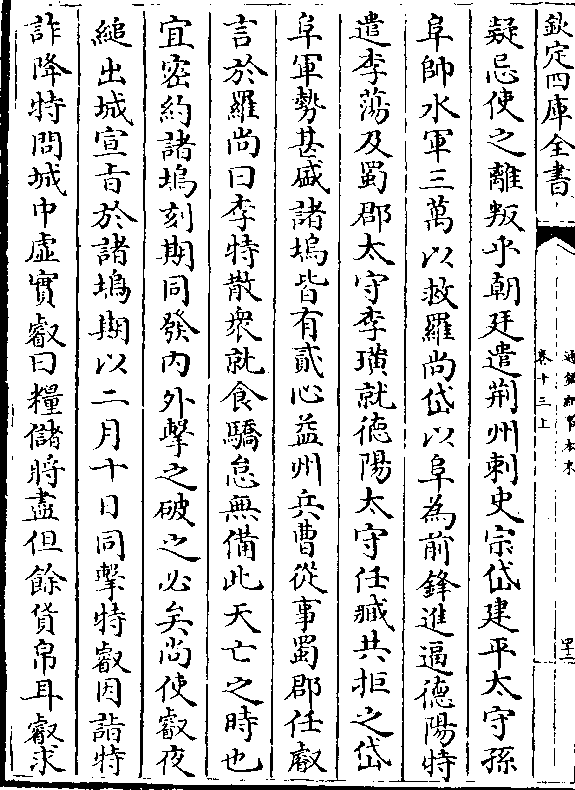 欽定四庫全書
通鑑紀事本末
卷十三上
疑忌使之離叛乎朝廷遣荆州刺史宗岱建平太守孫
阜帥水軍三萬以救羅尚岱以阜為前鋒進逼德陽特
遣李蕩及蜀郡太守李璜就德陽太守任臧共拒之岱
阜軍勢甚盛諸塢皆有貳心益州兵曹從事蜀郡任叡
言於羅尚曰李特散衆就食驕怠無備此天亡之時也
宜密約諸塢刻期同發内外擊之破之必矣尚使叡夜
縋出城宣旨於諸塢期以二月十日同擊特叡因詣特
詐降特問城中虚實叡曰糧儲將盡但餘貨帛耳叡求